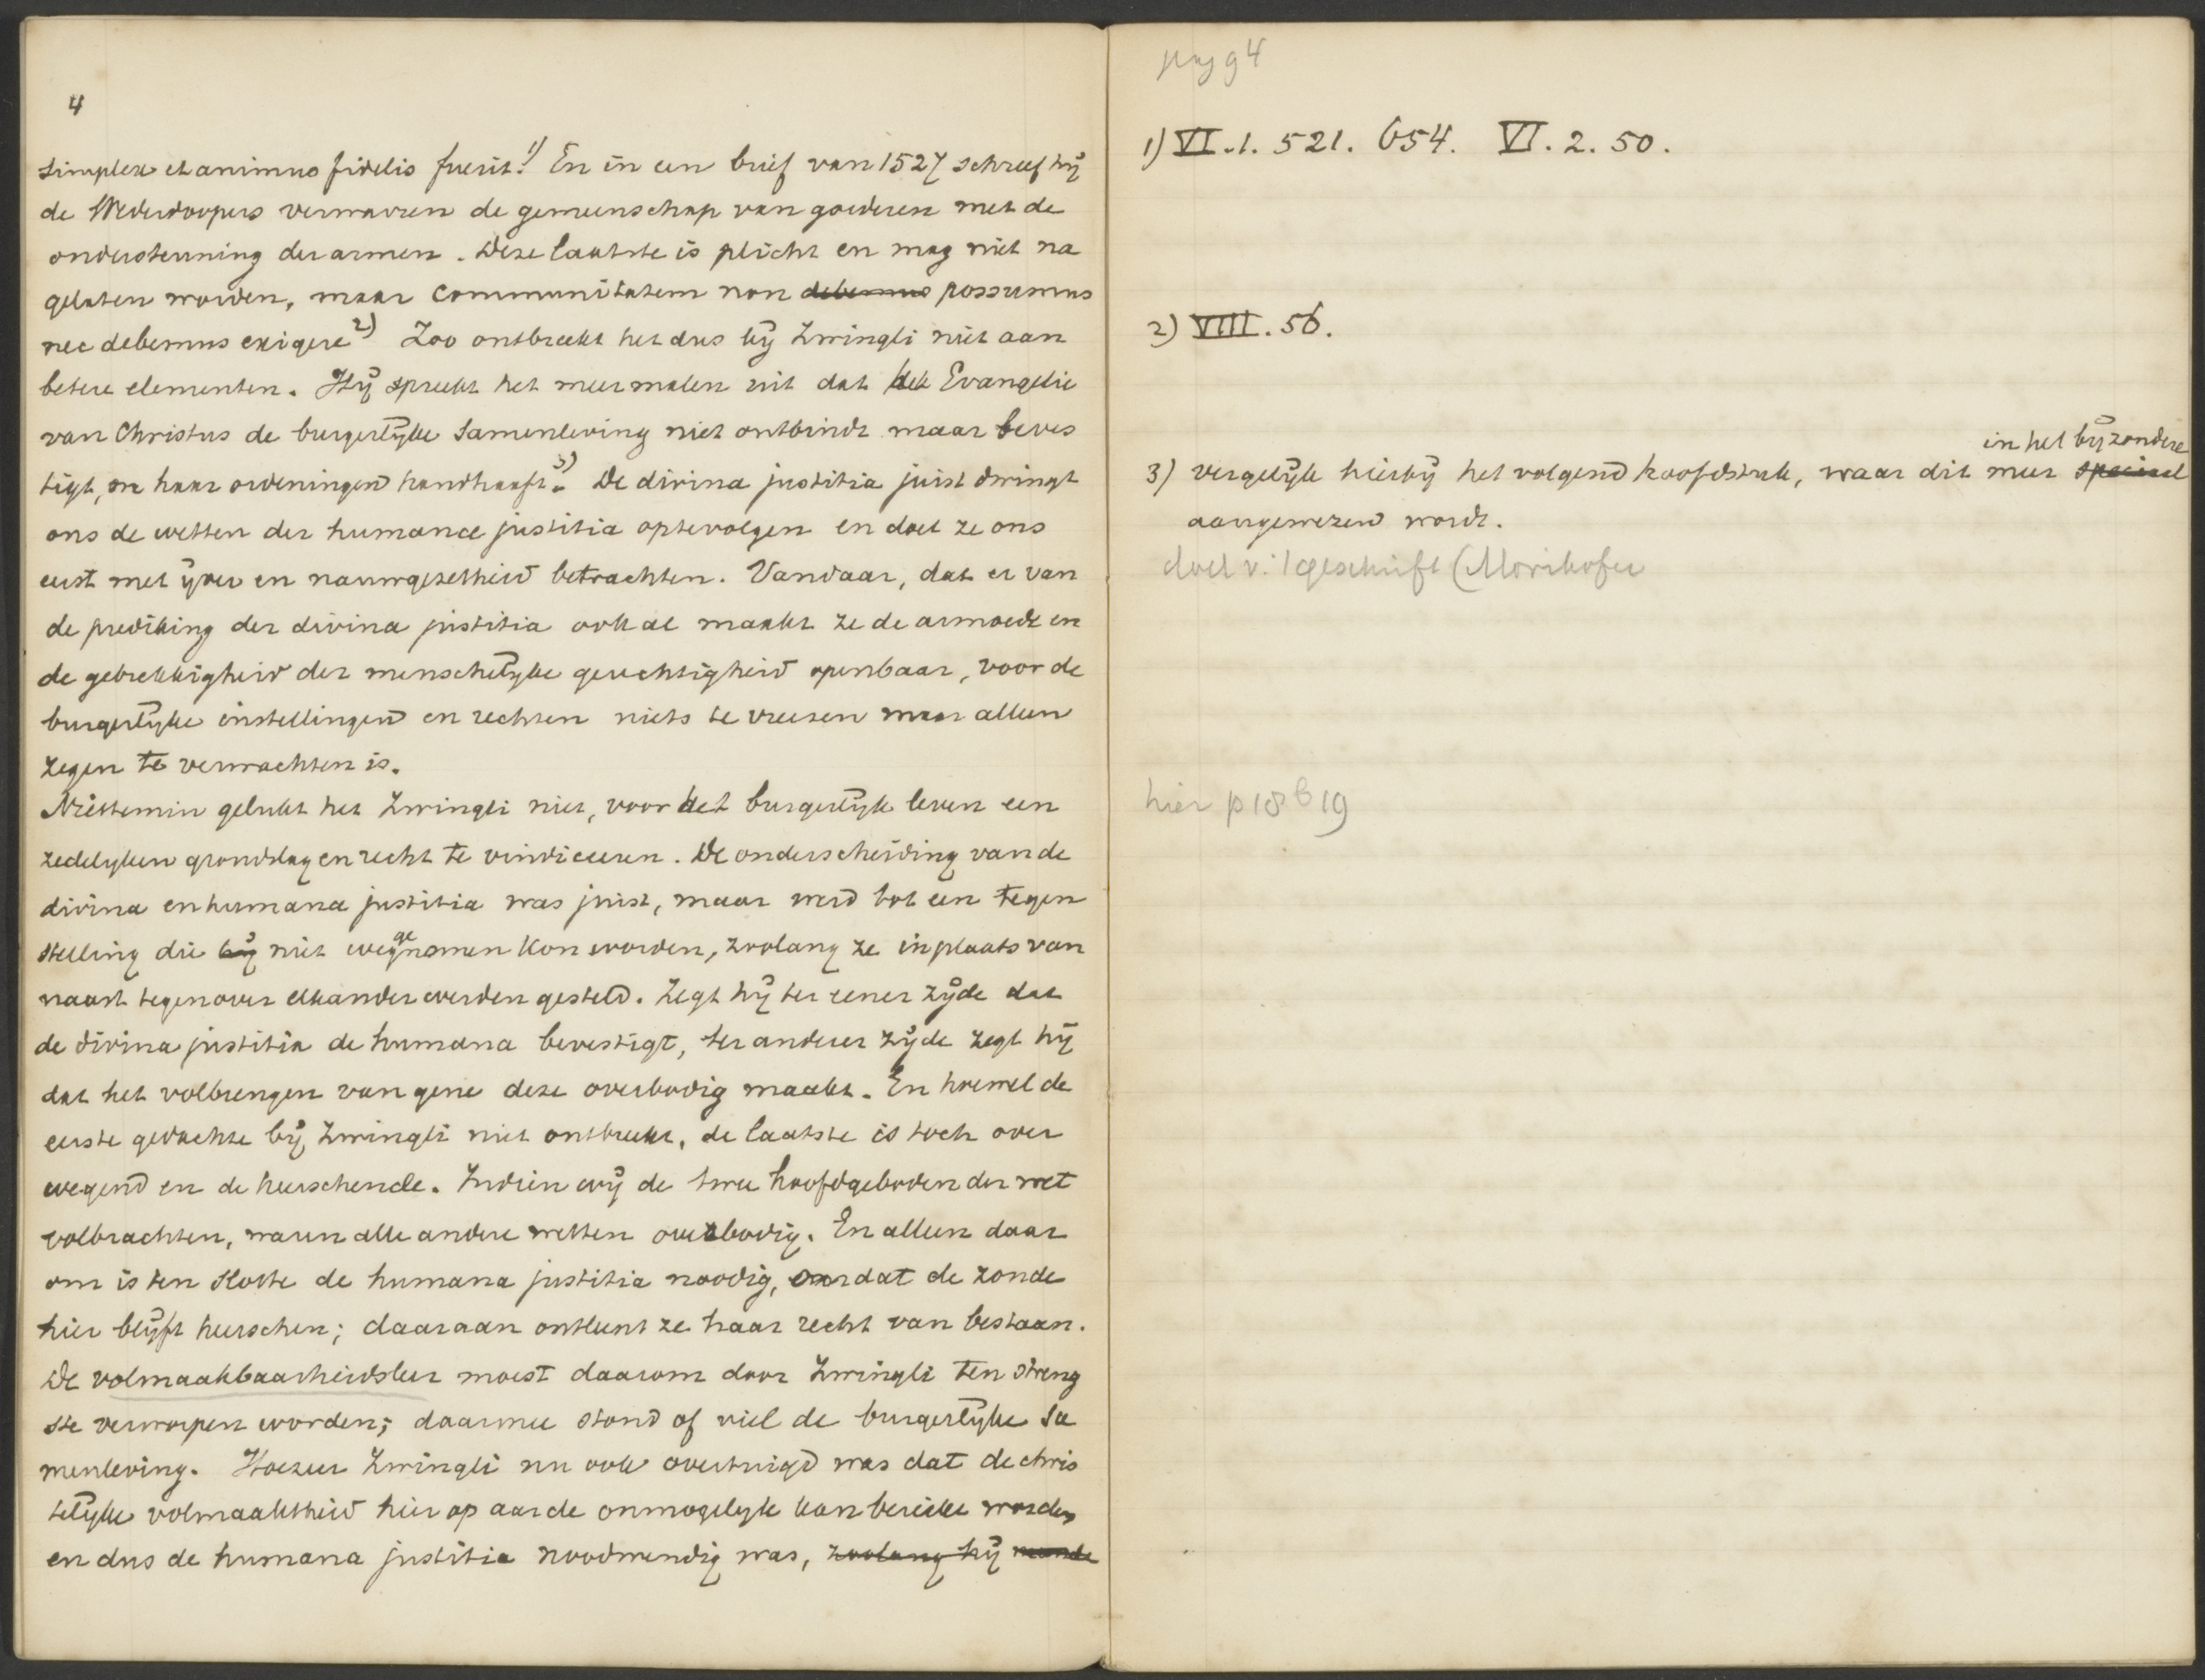 4
simplex et animus fidelis fuerit.1) En in een brief van 1527 schreef hij
de Wederdoopers verwarren de gemeenschap van goederen met de
ondersteuning der armen. Deze laatste is plicht en mag niet na
gelaten worden, maar communitatem non debemus possumus
nec debemus exigere2) Zoo ontbreekt het dus bij Zwingli niet aan
betere elementen. Hij spreekt het meermalen uit dat het Evangelie
van Christus de burgerlijke samenleving niet ontbindt maar beves
tigt, en haar ordeningen handhaaft.3) De divina justitia juist dwingt
ons de wetten der humanae justitia optevolgen en doet ze ons
eerst met ijver en nauwgezetheid betrachten. Vandaar, dat er van
de prediking der divina justitia ook al maakt ze de armoede en
de gebrekkigheid der menschelijke gerechtigheid openbaar, voor de
burgerlijke instellingen en rechten niets te vreezen maar alleen
zegen te verwachten is.
Niettemin gelukt het Zwingli niet, voor het burgerlijk leven een
zedelijken grondslag en recht te vindiceeren. De onderscheiding van de
divina en humana justitia was juist, maar werd tot een tegen
stelling die bij niet weggenomen kon worden, zoolang ze in plaats van
naast tegenover elkander werden gesteld. Zegt hij ter eener zijde dat
de divina justitia de humana bevestigt, ter anderer zijde zegt hij
dat het volbrengen van gene deze overbodig maakt. En hoewel de
eerste gedachte bij Zwingli niet ontbreekt, de laatste is toch over
wegend en de heerschende. Indien wij de twee hoofdgeboden der wet
volbrachten, waren alle andere wetten overbodig. En alleen daar
om is ten slotte de humana justitia noodig, omdat de zonde
hier blijft heerschen; daaraan ontleent ze haar recht van bestaan.
De volmaakbaarheidsleer moest daarom door Zwingli ten streng
ste verworpen worden; daarmee stond of viel de burgerlijke sa
menleving. Hoezeer Zwingli nu ook overtuigd was dat de chris
telijke volmaaktheid hier op aarde onmogelijk kon bereikt worden
en dus de humana justitia noodwendig was, zoolang hij
pag 4
1) VI.1. 521. 654. VI. 2. 50.
2) VIII. 56.
in het bijzonder
3) vergelijk hierbij het volgend hoofdstuk, waar dit meer speciaal
aangewezen wordt.
doel v. 't geschrift (Mörikofer
hier p 18 b 19